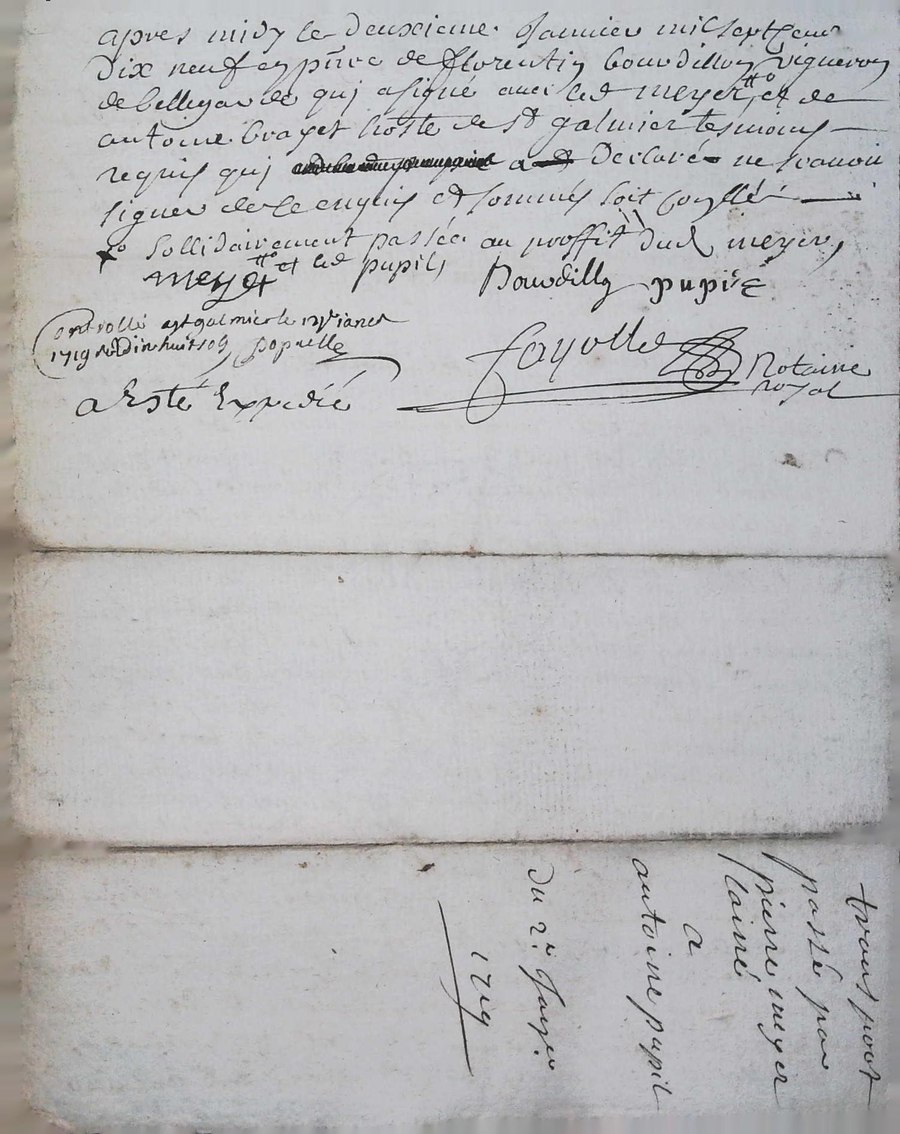 apres midy le deuxieme Janvier mil sept cent
dix neuf en pnce de florentin bourdillon vigneron
de bellegarde qui a signé avec led meyer #o et de
antoine brayet hoste de st galmier tesmoins
requis qui declaré ne scavoir
signer de ce enquis et sommés soit conllé
#o sollidairement passée au proffit dud meyer,
meyer #o et led pupil, Bourdilly pupile
Controllé a st galmier le 12e janer
1719 Rd dix huit sos popuelle
fayolle Notaire
royal
a Esté Expedié
transport
passé par
pierre meyer
lainé
a
antoine pupil
du 2e Janer
1719